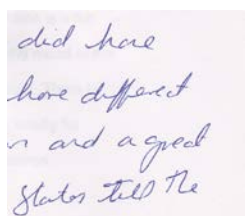 did have
have different
and a great
States tell the